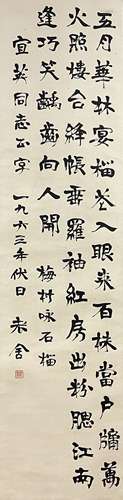 五月華林宴榴花入眼來百株當戶牖萬
火照樓台絳帳垂羅袖紅房出粉腮江南
逢巧笑齲齒向人開 梅村咏石榴
宜英同志正字 一九六三年伏日 老舍